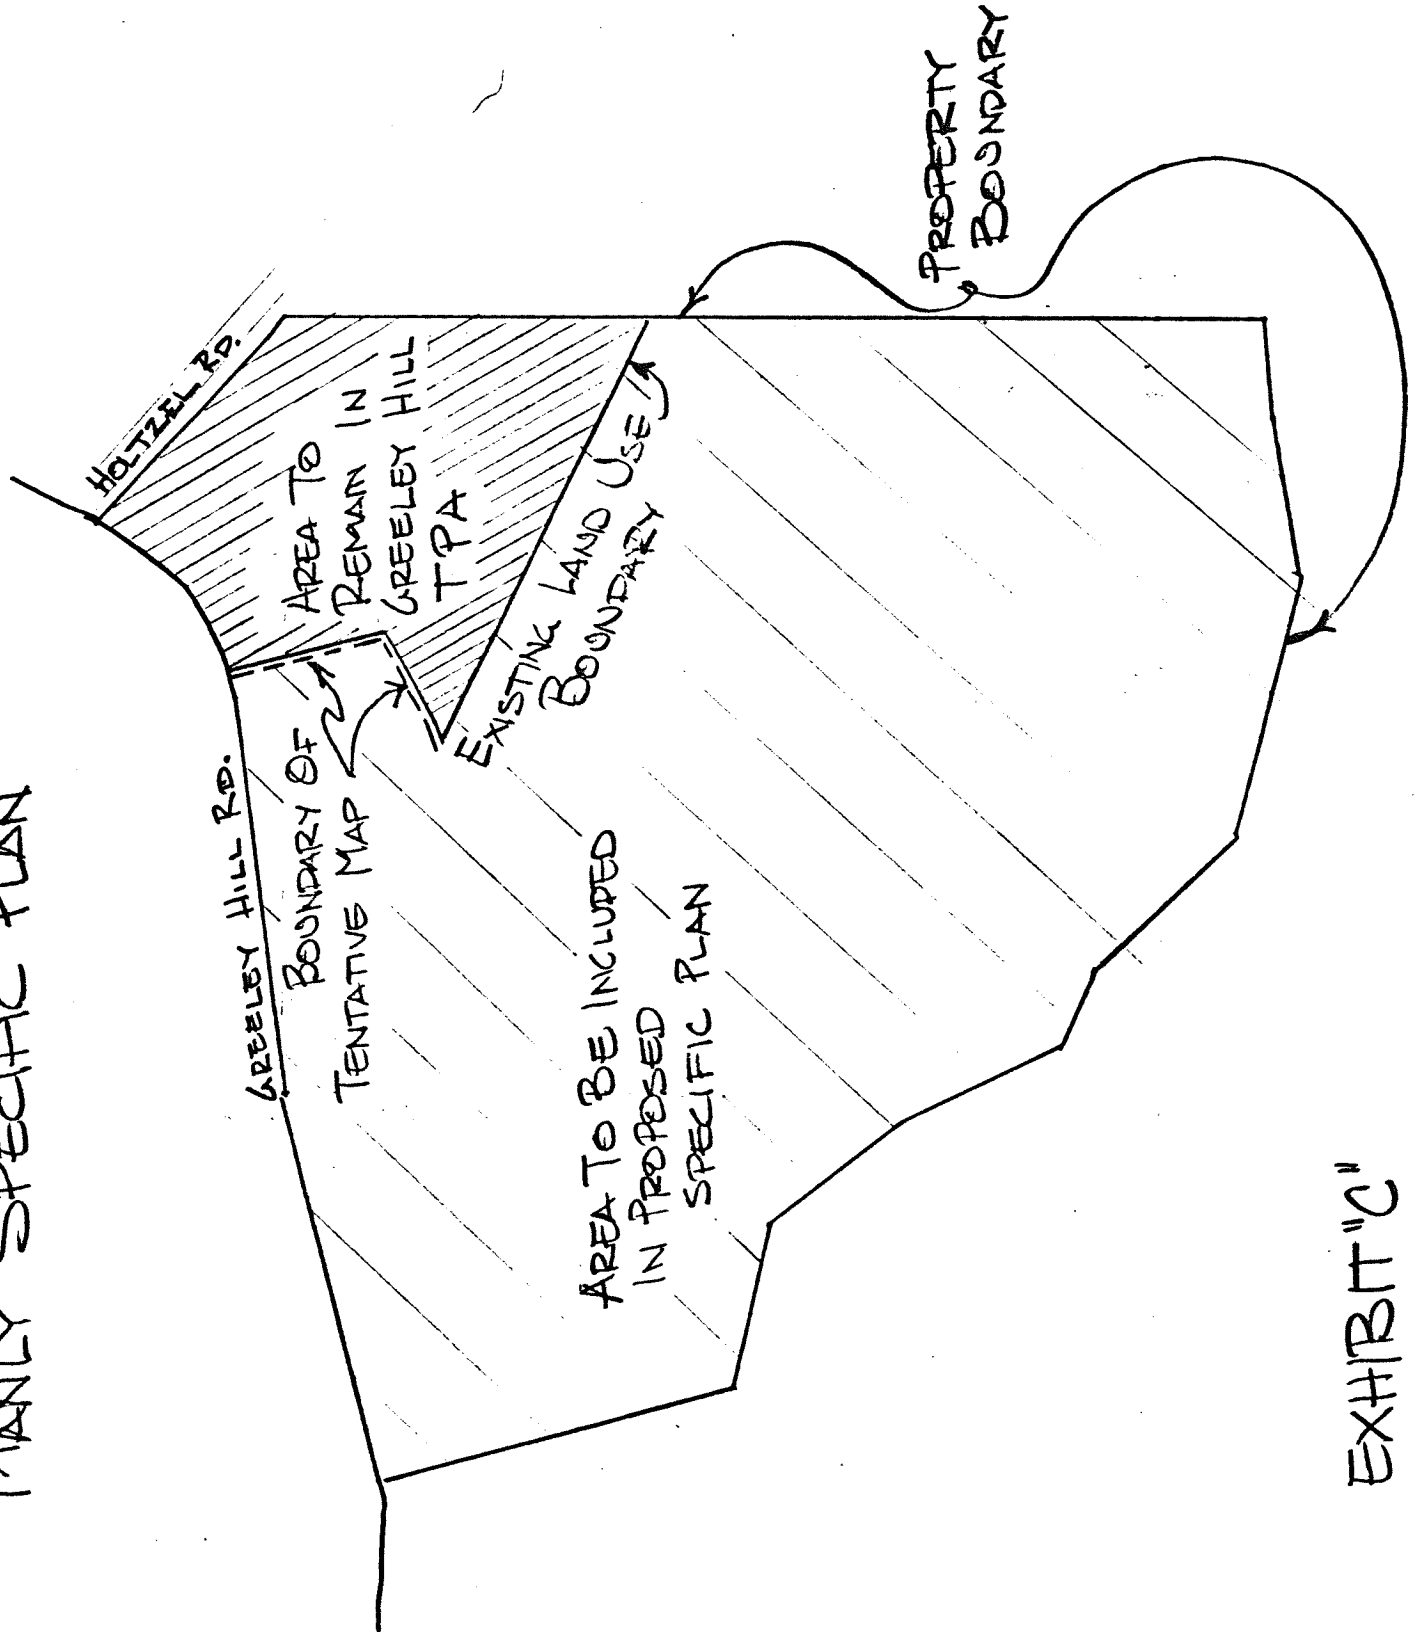 MANLY SPECIFIC PLAN
HOLTZEL RD.
GREELEY HILL RD.
AREA TO
REMAIN IN
GREELEY HILL
TPA
BOUNDARY OF
TENTATIVE MAP
EXISTING LAND USE
BOUNDARY
PROPERTY
BOUNDARY
AREA TO BE INCLUDED
IN PROPOSED
SPECIFIC PLAN
EXHIBIT "C"